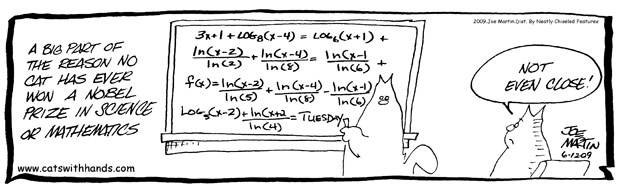 2009. Joe Martin. Dist. By Neatly Chiseled Features
A BIG PART OF
THE REASON NO
CAT HAS EVER
WON A NOBEL
PRIZE IN SCIENCE
OR MATHEMATICS
3x+1 + LOG₈(x-4) = LOG₆(x+1) +
ln(x-2)/ln(2) + ln(x-4)/ln(8) = ln(x-1/ln(6) +
f(x) = ln(x-2)/ln(5) + ln(x-4)/ln(8) - ln(x-1)/ln(6)
LOG₅(x-2) + ln(x+2/ln(4) = TUESDAY
NOT
EVEN CLOSE!
JOE
MARTIN
6-1209
www.catswithhands.com